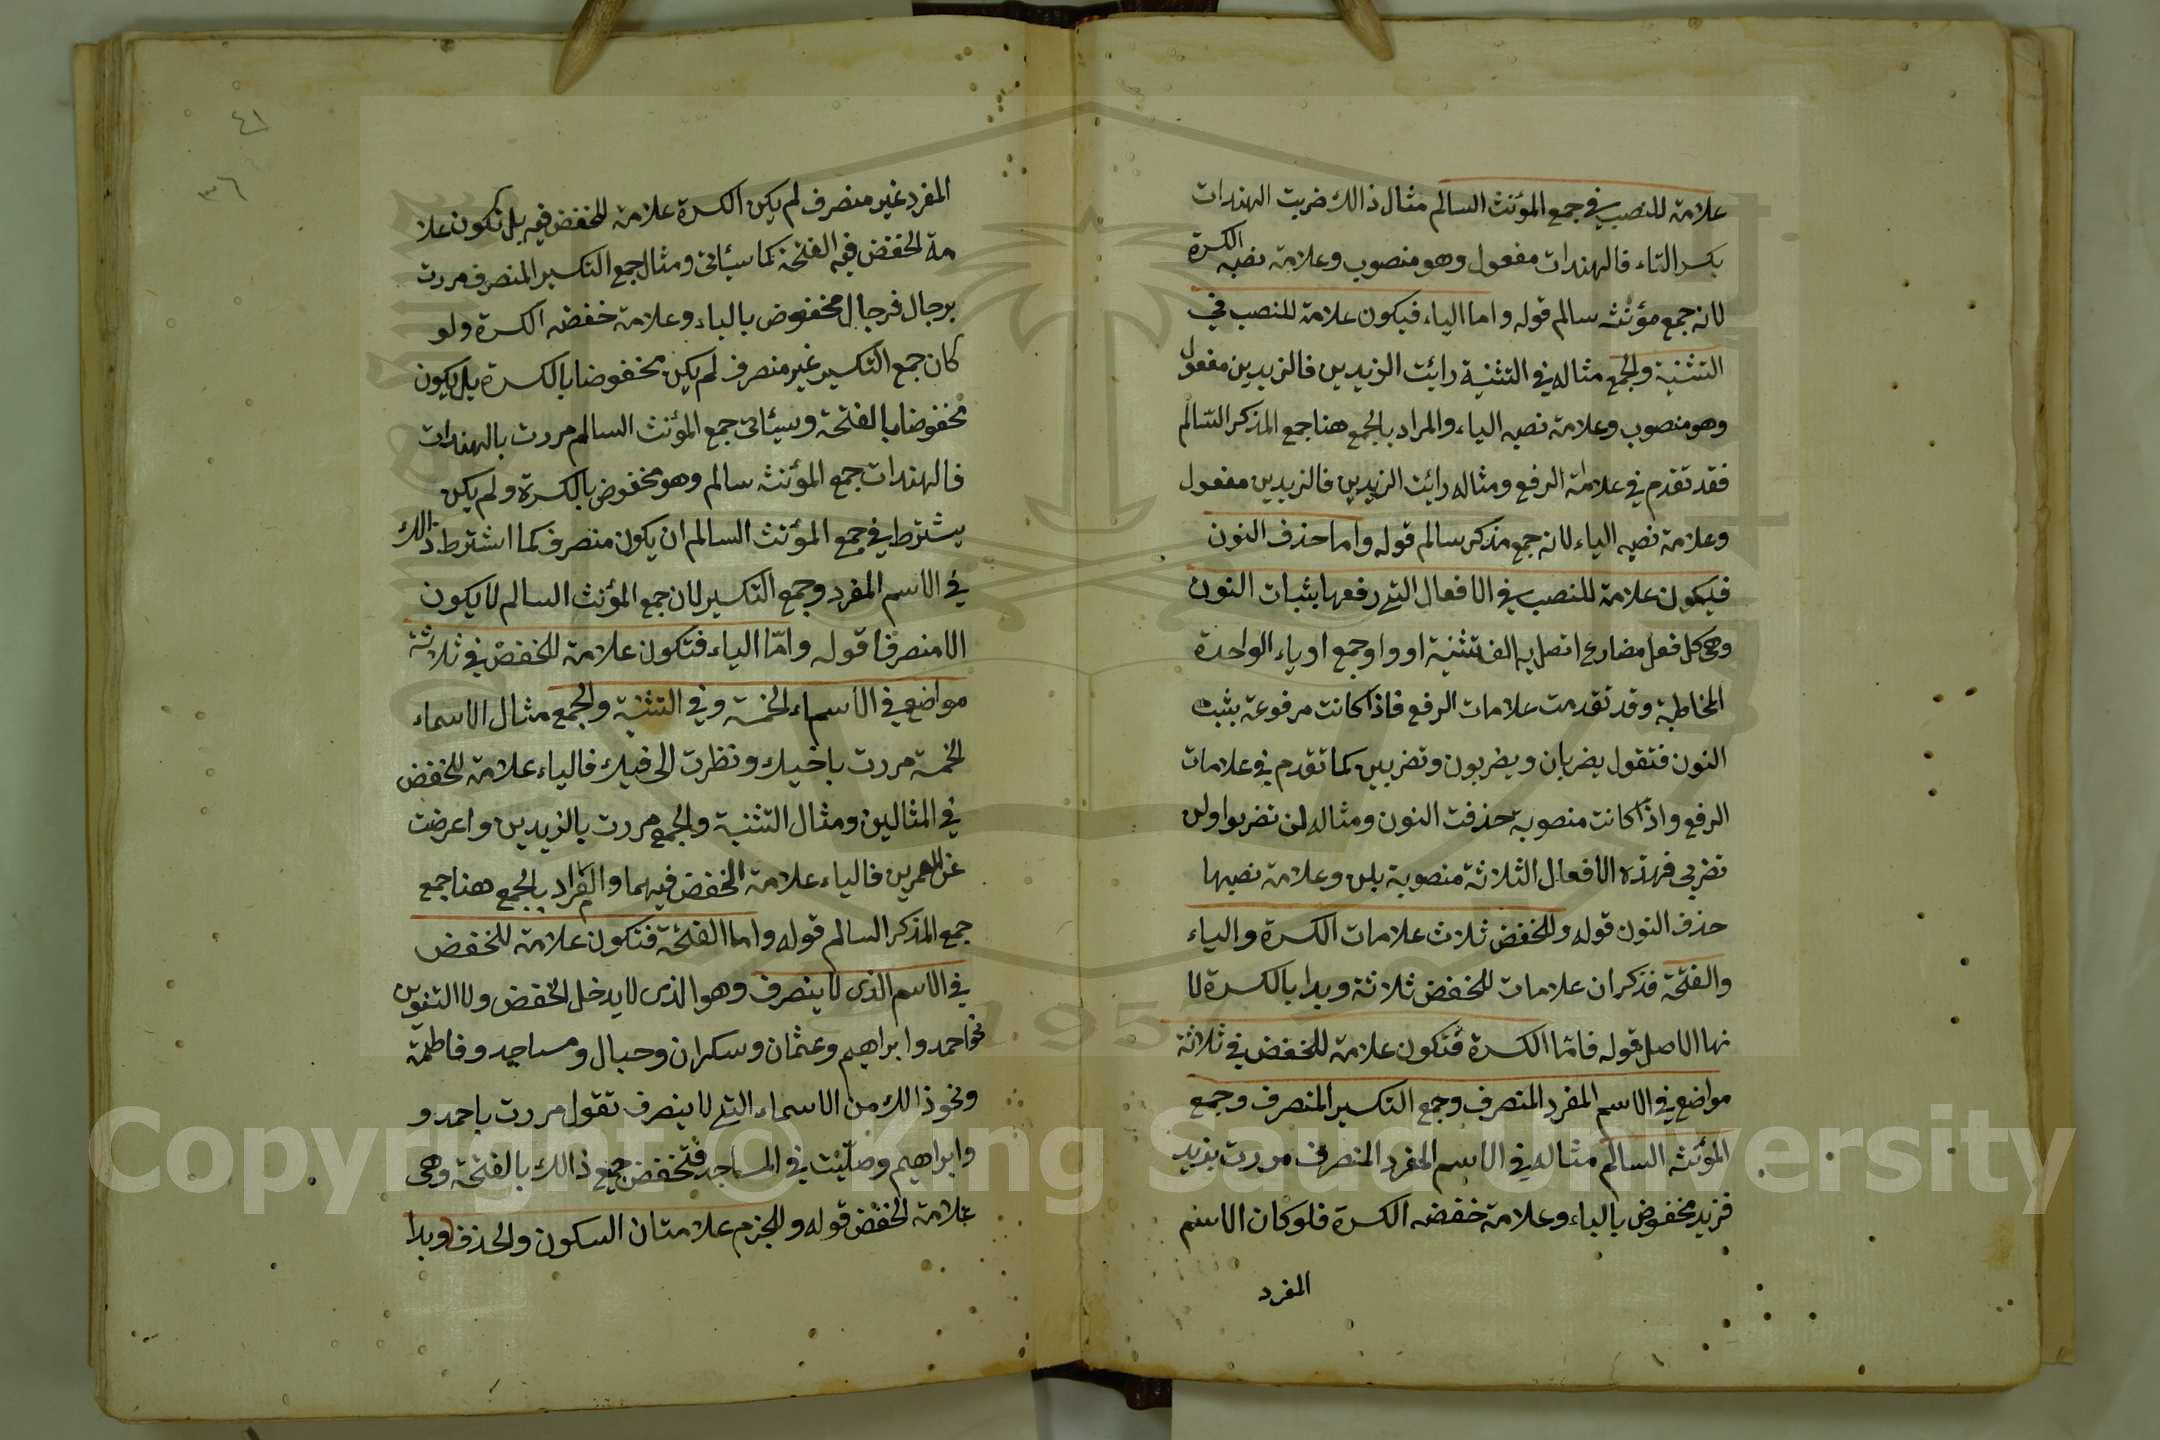 علامة للنصب في جمع المؤنث السالم مثال ذالك ضربت الهندات
بكسر التاء فالهندات مفعول وهو منصوب وعلامة نصبه الكسرة
لانه جمع مؤنث سالم قوله واما الياء فيكون علامة للنصب في
التثنية والجمع مثاله في التثنية رائت الزيدين فالزيدين مفعول
وهو منصوب وعلامة نصبه الياء والمراد بالجمع هنا جمع المذكر السالم
فقد تقدم في علامة الرفع ومثاله رائت الزيدين فالزيدين مفعول
وعلامة نصبه الياء لانه جمع مذكر سالم قوله واما حذف النون
فيكون علامة للنصب في الافعال التي رفعها بثبات النون
وهي كل فعل مضارع اتصل به الف تثنية او واو جمع او ياء الواحدة
المخاطبة وقد تقدمت علامات الرفع فاذا كانت مرفوعة بثبت
النون فتقول يضربان ويضربون وتضربين كما تقدم في علامات
الرفع واذا كانت منصوبة حذفت النون ومثاله لن تضربوا ولن
تضربي فهذه الافعال الثلاثة منصوبة بلن وعلامة نصبها
حذف النون قوله وللخفض ثلاث علامات الكسرة والياء
والفتحة فذكر ان علامات للخفض ثلاثة وبدا بالكسرة لا
نها الاصل قوله فاما الكسرة فتكون علامة للخفض في ثلاثة
مواضع في الاسم المفرد المنصرف وجمع التكسير المنصرف وجمع
المؤنث السالم مثاله في الاسم المفرد المنصرف مررت بزيد
فزيد مخفوض بالباء وعلامة خفضه الكسرة فلو كان الاسم
المفرد
٤١
٣٦
المفرد غير منصرف لم يكن الكسرة علامة للخفض فيه بل تكون علا
مة الخفض فيه الفتحة كما سيئاتي ومثال جمع التكسير المنصرف مررت
برجال فرجال مخفوض بالباء وعلامة خفضه الكسرة ولو
كان جمع التكسير غير منصرف لم يكن مخفوضا بالكسرة بل يكون
مخفوضا بالفتحة وسيئاتي جمع المؤنث السالم مررت بالهندات
فالهندات جمع المؤنث سالم وهو مخفوض بالكسرة ولم يكن
يشترط في جمع المؤنث السالم ان يكون منصرف كما اشترط ذالك
في الاسم المفرد وجمع التكسير لان جمع المؤنث السالم لا يكون
الا منصرفا قوله وامّا الياء فتكون علامة للخفض في ثلاثة
مواضع في الاسماء الخمسة وفي التثنية والجمع مثال الاسماء
الخمسة مررت باخيك ونظرت الى فيك فالياء علامة للخفض
في المثالين ومثال التثنية والجمع مررت بالزيدين واعرضت
عن العمرين فالياء علامة الخفض فيهما والمراد بالجمع هنا جمع
جمع المذكر السالم قوله واما الفتحة فتكون علامة للخفض
في الاسم الذي لا ينصرف وهو الذي لا يدخل الخفض ولا التنوين
نحو احمد وابراهيم وعثمان وسكران وحبال ومساجد وفاطمة
ونحو ذالك من الاسماء التي لا ينصرف تقول مررت باحمد و
وابراهيم وصلّيت في المساجد فتخفض جميع ذالك بالفتحة وهي
علامة الخفض قوله وللجزم علامتان السكون والحذف وبدا
Copyright © King Saud University
1957